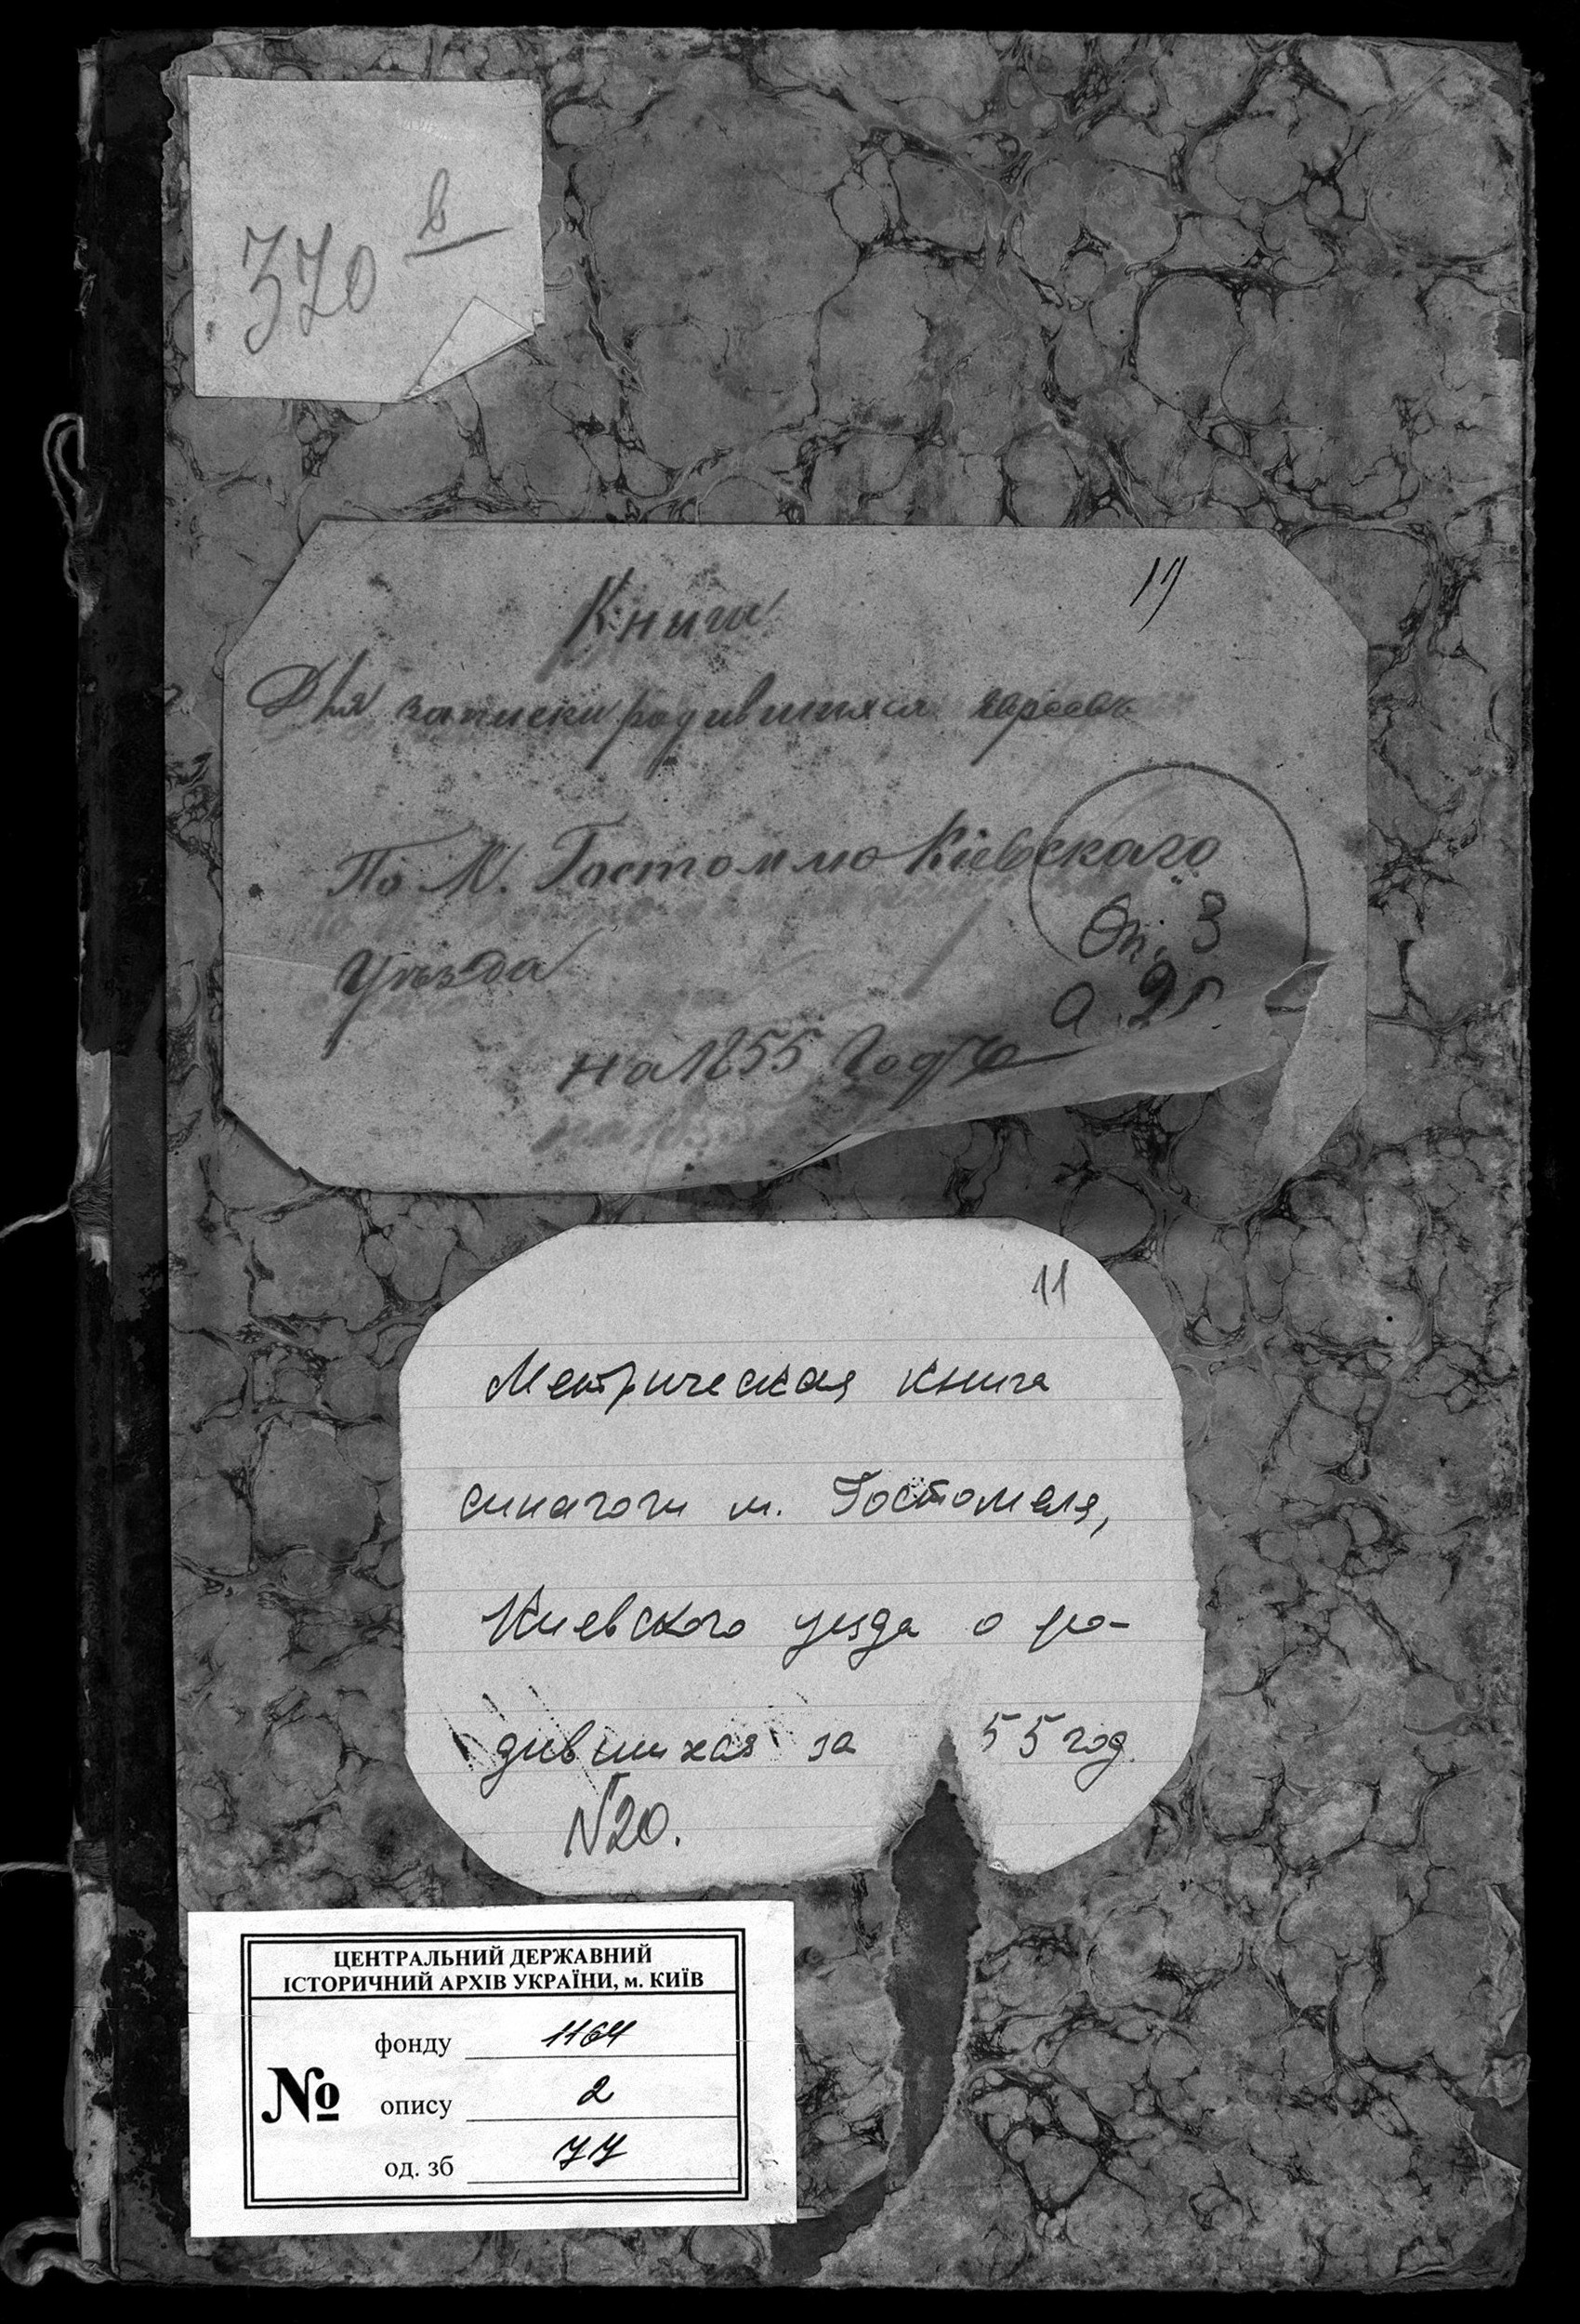 370 в
17
Книга
Для записки родившихся евреевъ
По М. Гостомлю Кіевскаго
Уѣзда
Оп. 3
на 1855 Годъ
11
Метрическая книга
синагоги м. Гостомеля,
Киевского уезда о ро-
дившихся за 55 год.
N20.
ЦЕНТРАЛЬНИЙ ДЕРЖАВНИЙ
ІСТОРИЧНИЙ АРХІВ УКРАЇНИ, м. КИЇВ
№
фонду 1164
опису 2
од. зб 77